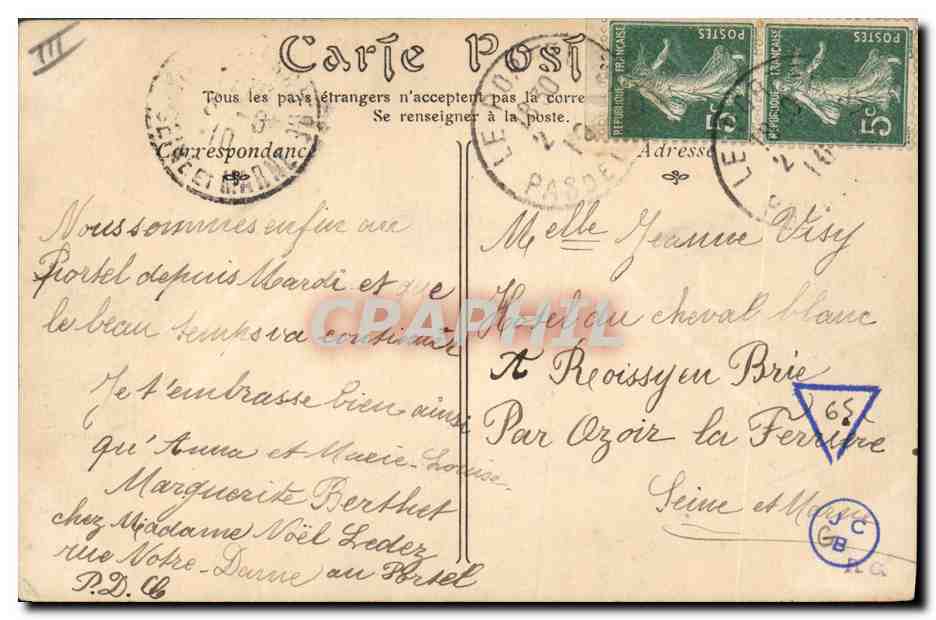 III
Carte Post
Tous les pays étrangers n'acceptent pas la corre
Se renseigner à la poste.
Correspondance
Adresse
SEINE ET MARNE
LE PORTEL
PAS DE
LE POR
REPUBLIQUE FRANÇAISE
POSTES
5c
REPUBLIQUE FRANÇAISE
POSTES
5c
Nous sommes enfin au
Portel depuis Mardi et que
le beau temps va continuer
Je t'embrasse bien ainsi
qu'Anna et Marie-Louise
Marguerite Berthet
chez Madame Noël Ledez
rue Notre-Dame au Portel
P.D.C
Melle Jeanne Visy
Hotel du cheval blanc
A Roissy en Brie
Par Ozoir la Ferrière
Seine et Marne
65
JC
B
CPARPHIL